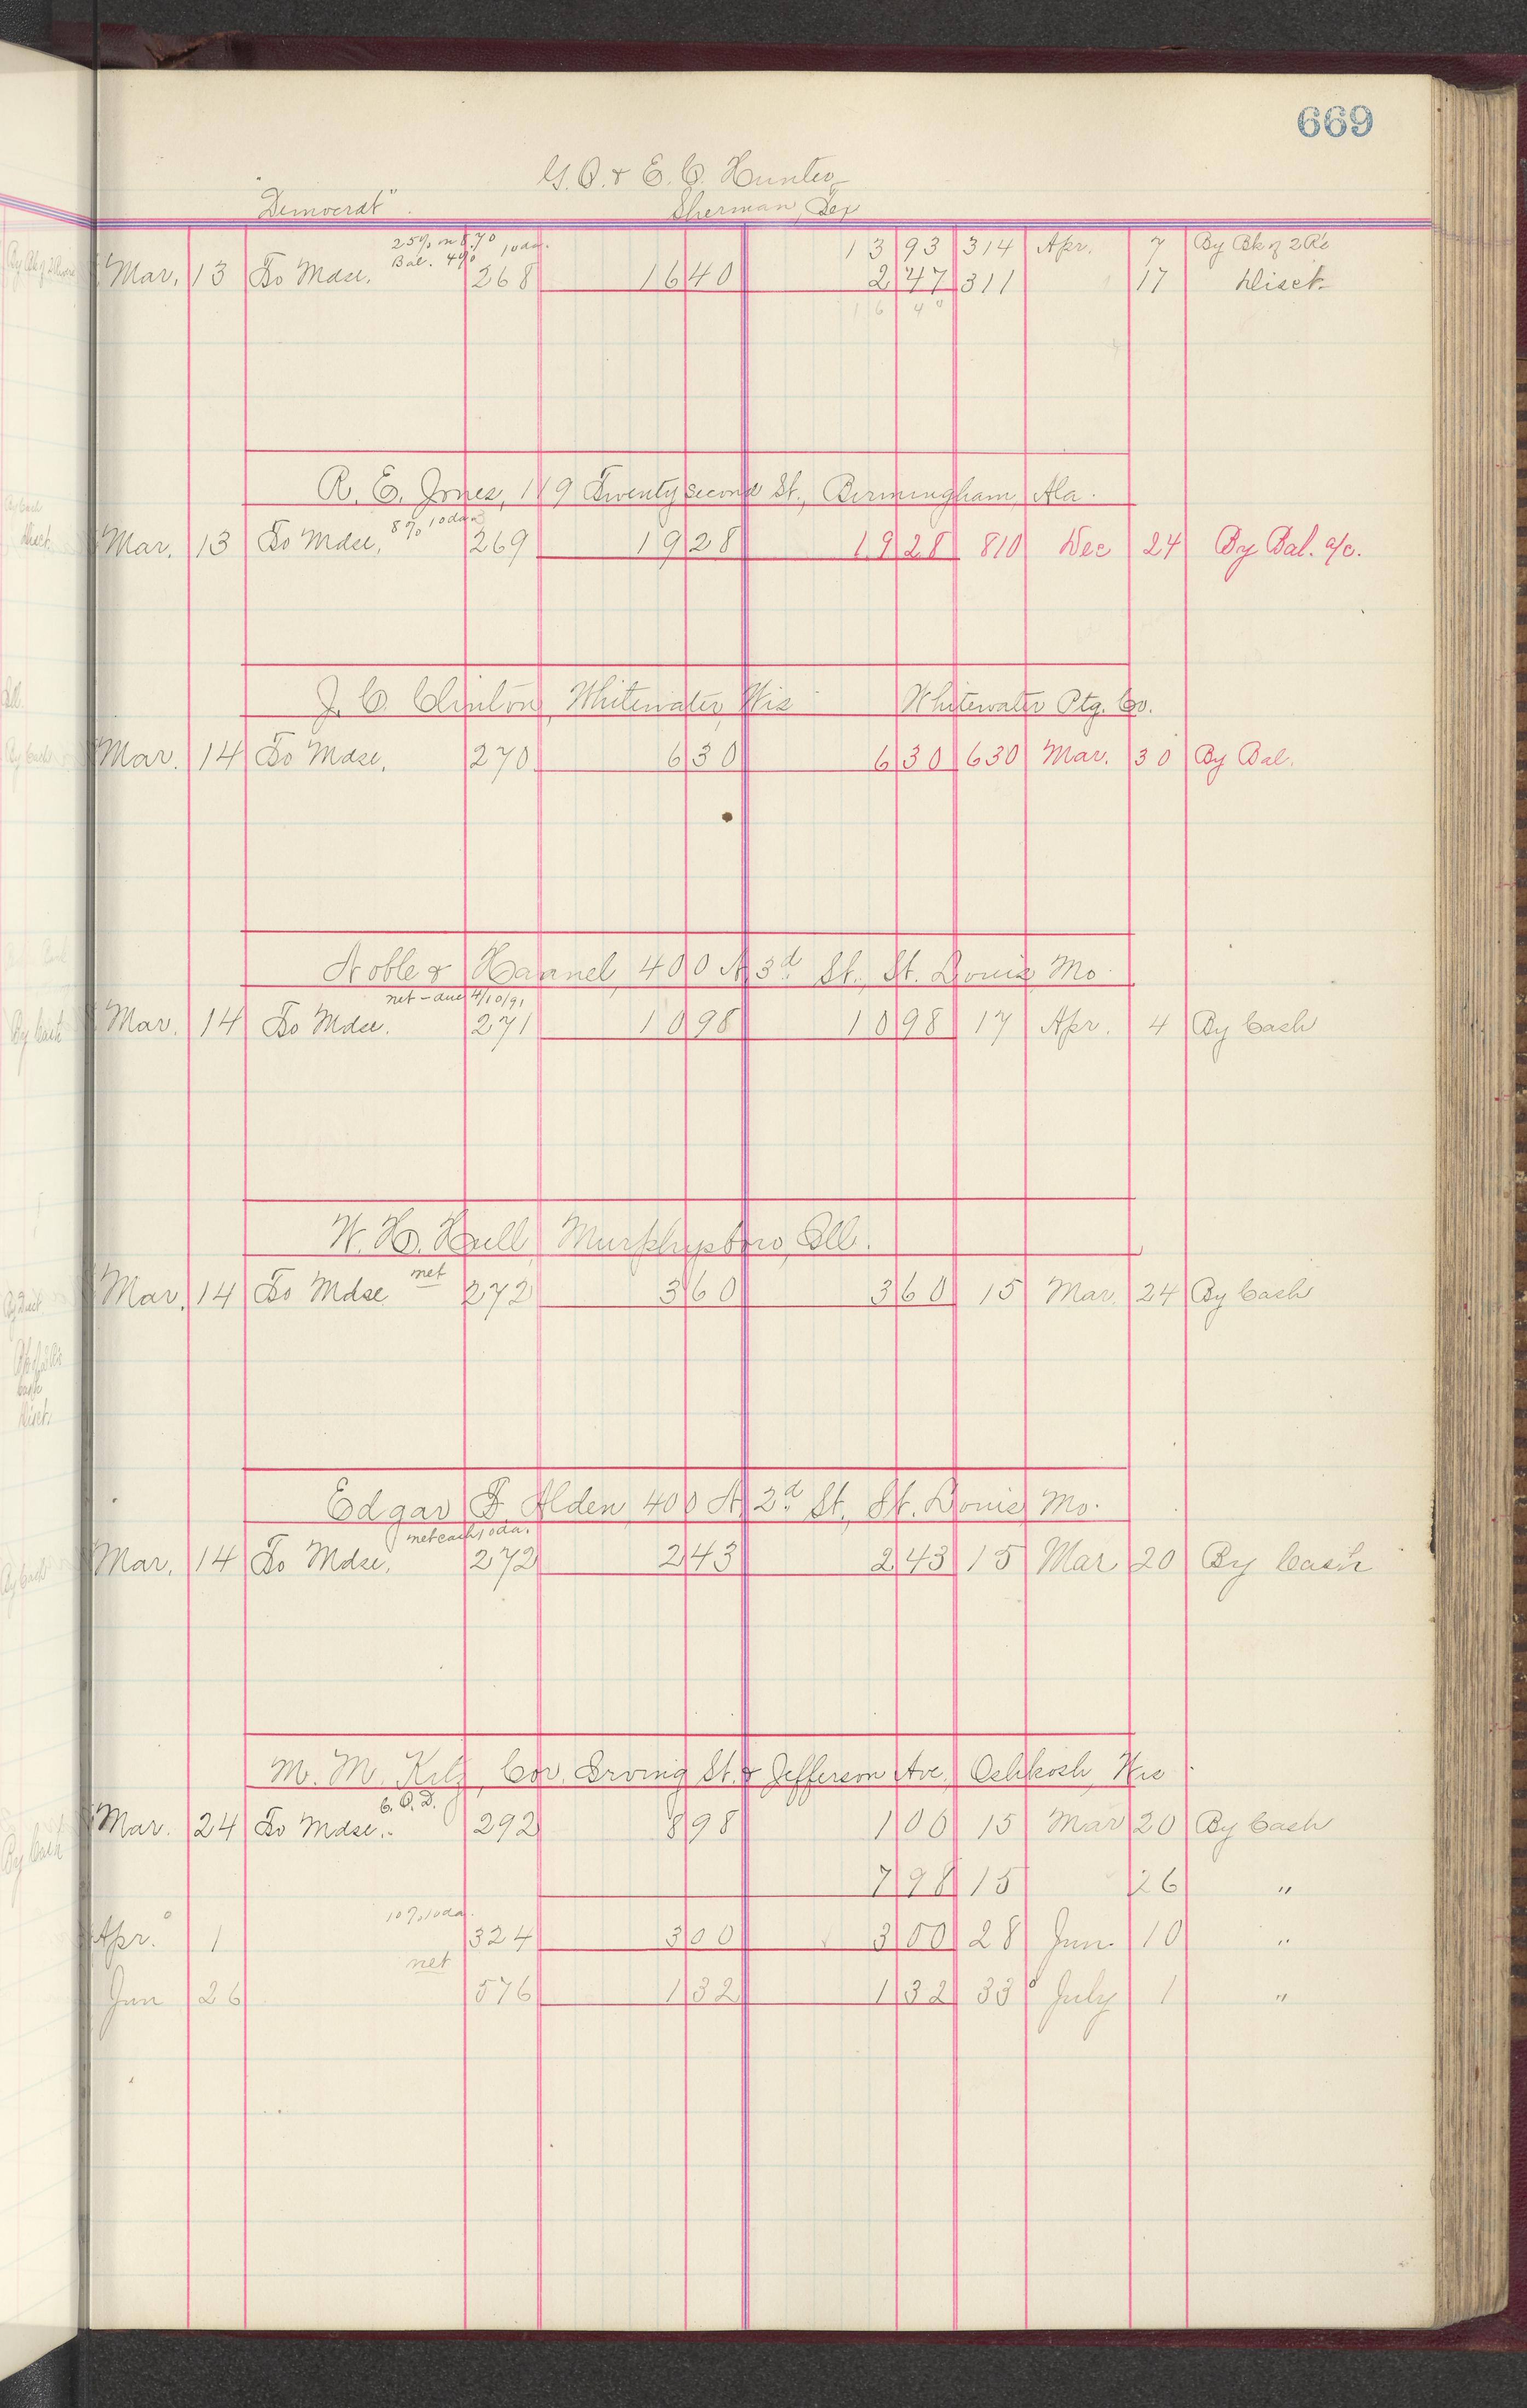 669
G. O. & E. C. Hunter
"Democrat" Sherman, Tex
25% on 8.70 10 da.
Bal. 4%
13 93 314 Apr. 7 By Bk of 2 R's
Mar. 13 To Mdse. 268 16 40 2 47 311 17 Disct.
16 40
R. E. Jones, 119 Twenty second St., Birmingham, Ala.
8% 10 da
Mar. 13 To Mdse. 269 19 28 19 28 810 Dec 24 By Bal. a/c.
J. C. Clinton, Whitewater, Wis Whitewater Ptg. Co.
Mar. 14 To Mdse. 270 6 30 6 30 630 Mar. 30 By Bal.
Noble & Hannel, 400 N. 3d. St., St. Louis, Mo.
net - due 4/10/91
Mar. 14 To Mdse. 271 10 98 10 98 17 Apr. 4 By Cash
W. H. Hull, Murphysboro, Ill.
net
Mar. 14 To Mdse 272 3 60 3 60 15 Mar. 24 By Cash
Edgar F. Alden, 400 N. 2d. St., St. Louis, Mo.
net cash 10 da.
Mar. 14 To Mdse. 272 2 43 2 43 15 Mar 20 By Cash
M. M. Cor. Irving St. & Jefferson Ave., Oshkosh, Wis
C. O. D.
Mar. 24 To Mdse. 292 8 98 1 00 15 Mar 20 By Cash
7 98 15 26 "
10% 10 da.
Apr. 1 324 3 00 3 00 28 Jun. 10 "
net
Jun 26 576 1 32 1 32 33 July 1 "